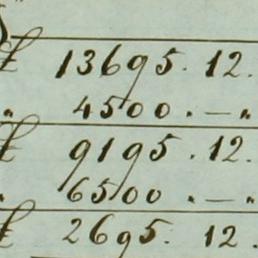 £ 13695. 12.
" 4500. — "
£ 9195. 12.
" 6500 " — "
£ 2695. 12.